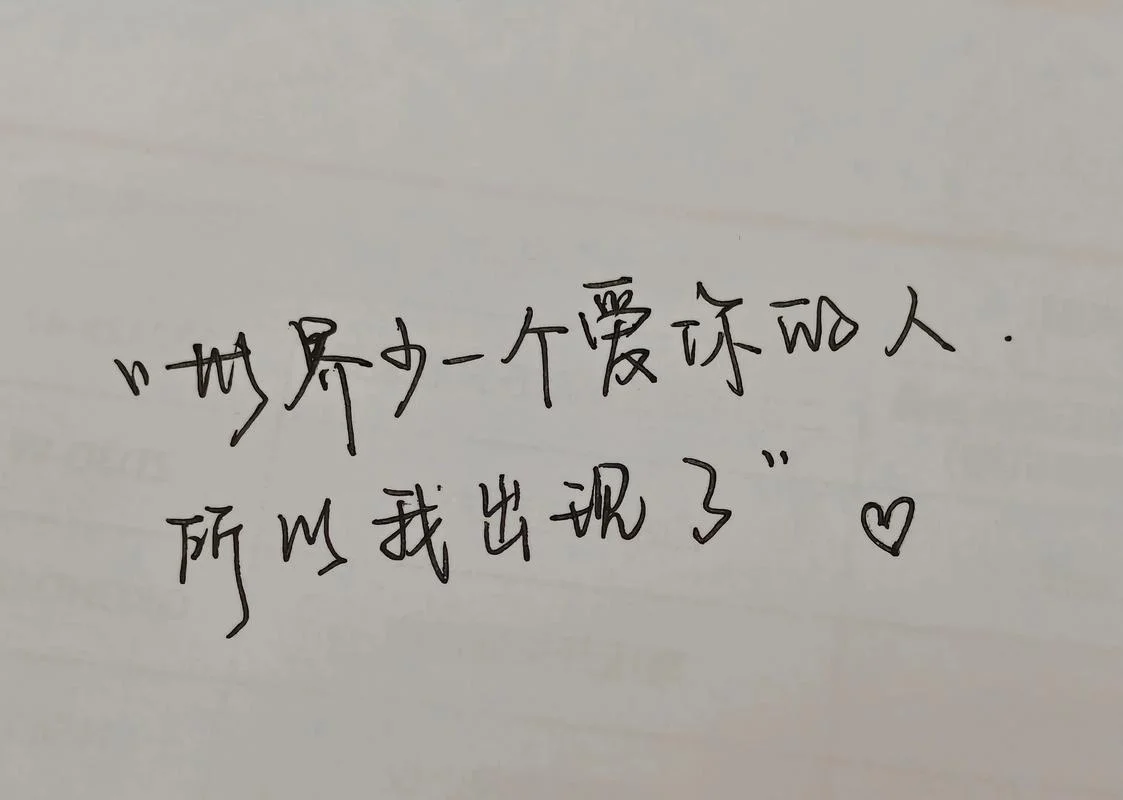 "世界少一个爱你的人.
所以我出现了"♡